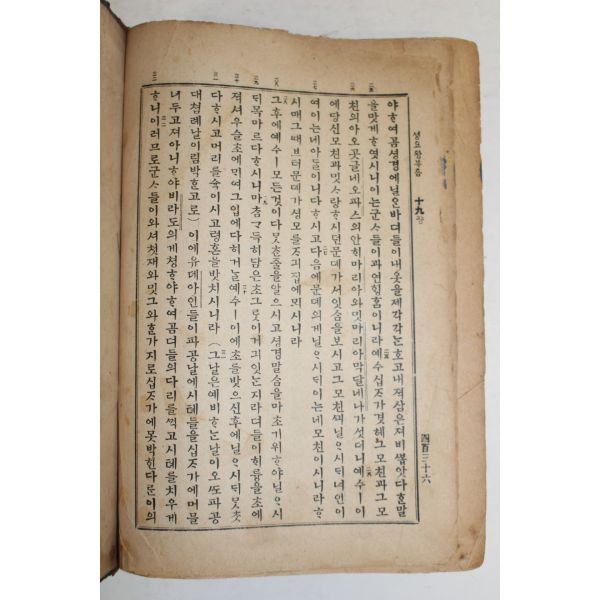 셩요왕복음 十九쟝
四百三十六
야ᄒᆞ여곰셩경에닐ᄋᆞᆫ바뎌들이내옷을제각각ᄂᆞᆫ호고내져삼은져비ᄲᅩᆸ앗다ᄒᆞᆫ말
을맛게ᄒᆞ엿시니이ᄂᆞᆫ군ᄉᆞ들이과연ᄒᆡᆼᄒᆞᆷ이니라예수십ᄌᆞ가겻헤그모친과그모
친의아오곳글네오파스의안ᄒᆡ마리아와밋마리아막달네나가섯더니예수ㅣ이
에당신모친과밋ᄉᆞ랑ᄒᆞ시던문뎨가셔잇ᄉᆞᆷ을보시고그모친ᄭᅴ닐ᄋᆞ시ᄃᆡ녀인이
여이ᄂᆞᆫ네아ᄃᆞᆯ이니다ᄒᆞ시고다음에문뎨의게닐ᄋᆞ시ᄃᆡ이ᄂᆞᆫ네모친이시니라ᄒᆞ
시매그ᄯᅢ브터문뎨가셩모ᄅᆞᆯᄌᆞ긔집에뫼시니라
그후에예수ㅣ모든것이다ᄆᆞᆺᄎᆞᆫ줄을알으시고셩경말ᄉᆞᆷ을마초기위ᄒᆞ야닐ᄋᆞ시
ᄃᆡ목마르다ᄒᆞ시니마ᄎᆞᆷ그득히담은초그ᄅᆞᆺ이거긔잇ᄂᆞᆫ지라뎌들이ᄒᆡ륭을초에
젹셔우슬초에ᄆᆡ여그입에다히거ᄂᆞᆯ예수ㅣ이에초ᄅᆞᆯ밧으신후에닐ᄋᆞ시ᄃᆡᄆᆞᆺ찻
다ᄒᆞ시고머리ᄅᆞᆯ숙이시고령혼을밧치시니라(그날은예비ᄒᆞᄂᆞᆫ날이오ᄯᅩ파공
대쳠례날이림박ᄒᆞᆫ고로)이에유데아인들이파공날에시톄들을십ᄌᆞ가에머믈
너두고져아니ᄒᆞ야비라도의게쳥ᄒᆞ야ᄒᆞ여곰뎌들의다리ᄅᆞᆯᄭᅥᆨ고시톄ᄅᆞᆯ치우게
ᄒᆞ니이러므로군ᄉᆞ들이와셔첫재와밋그와ᄒᆞᆫ가지로십ᄌᆞ가에못박힌다ᄅᆞᆫ이의